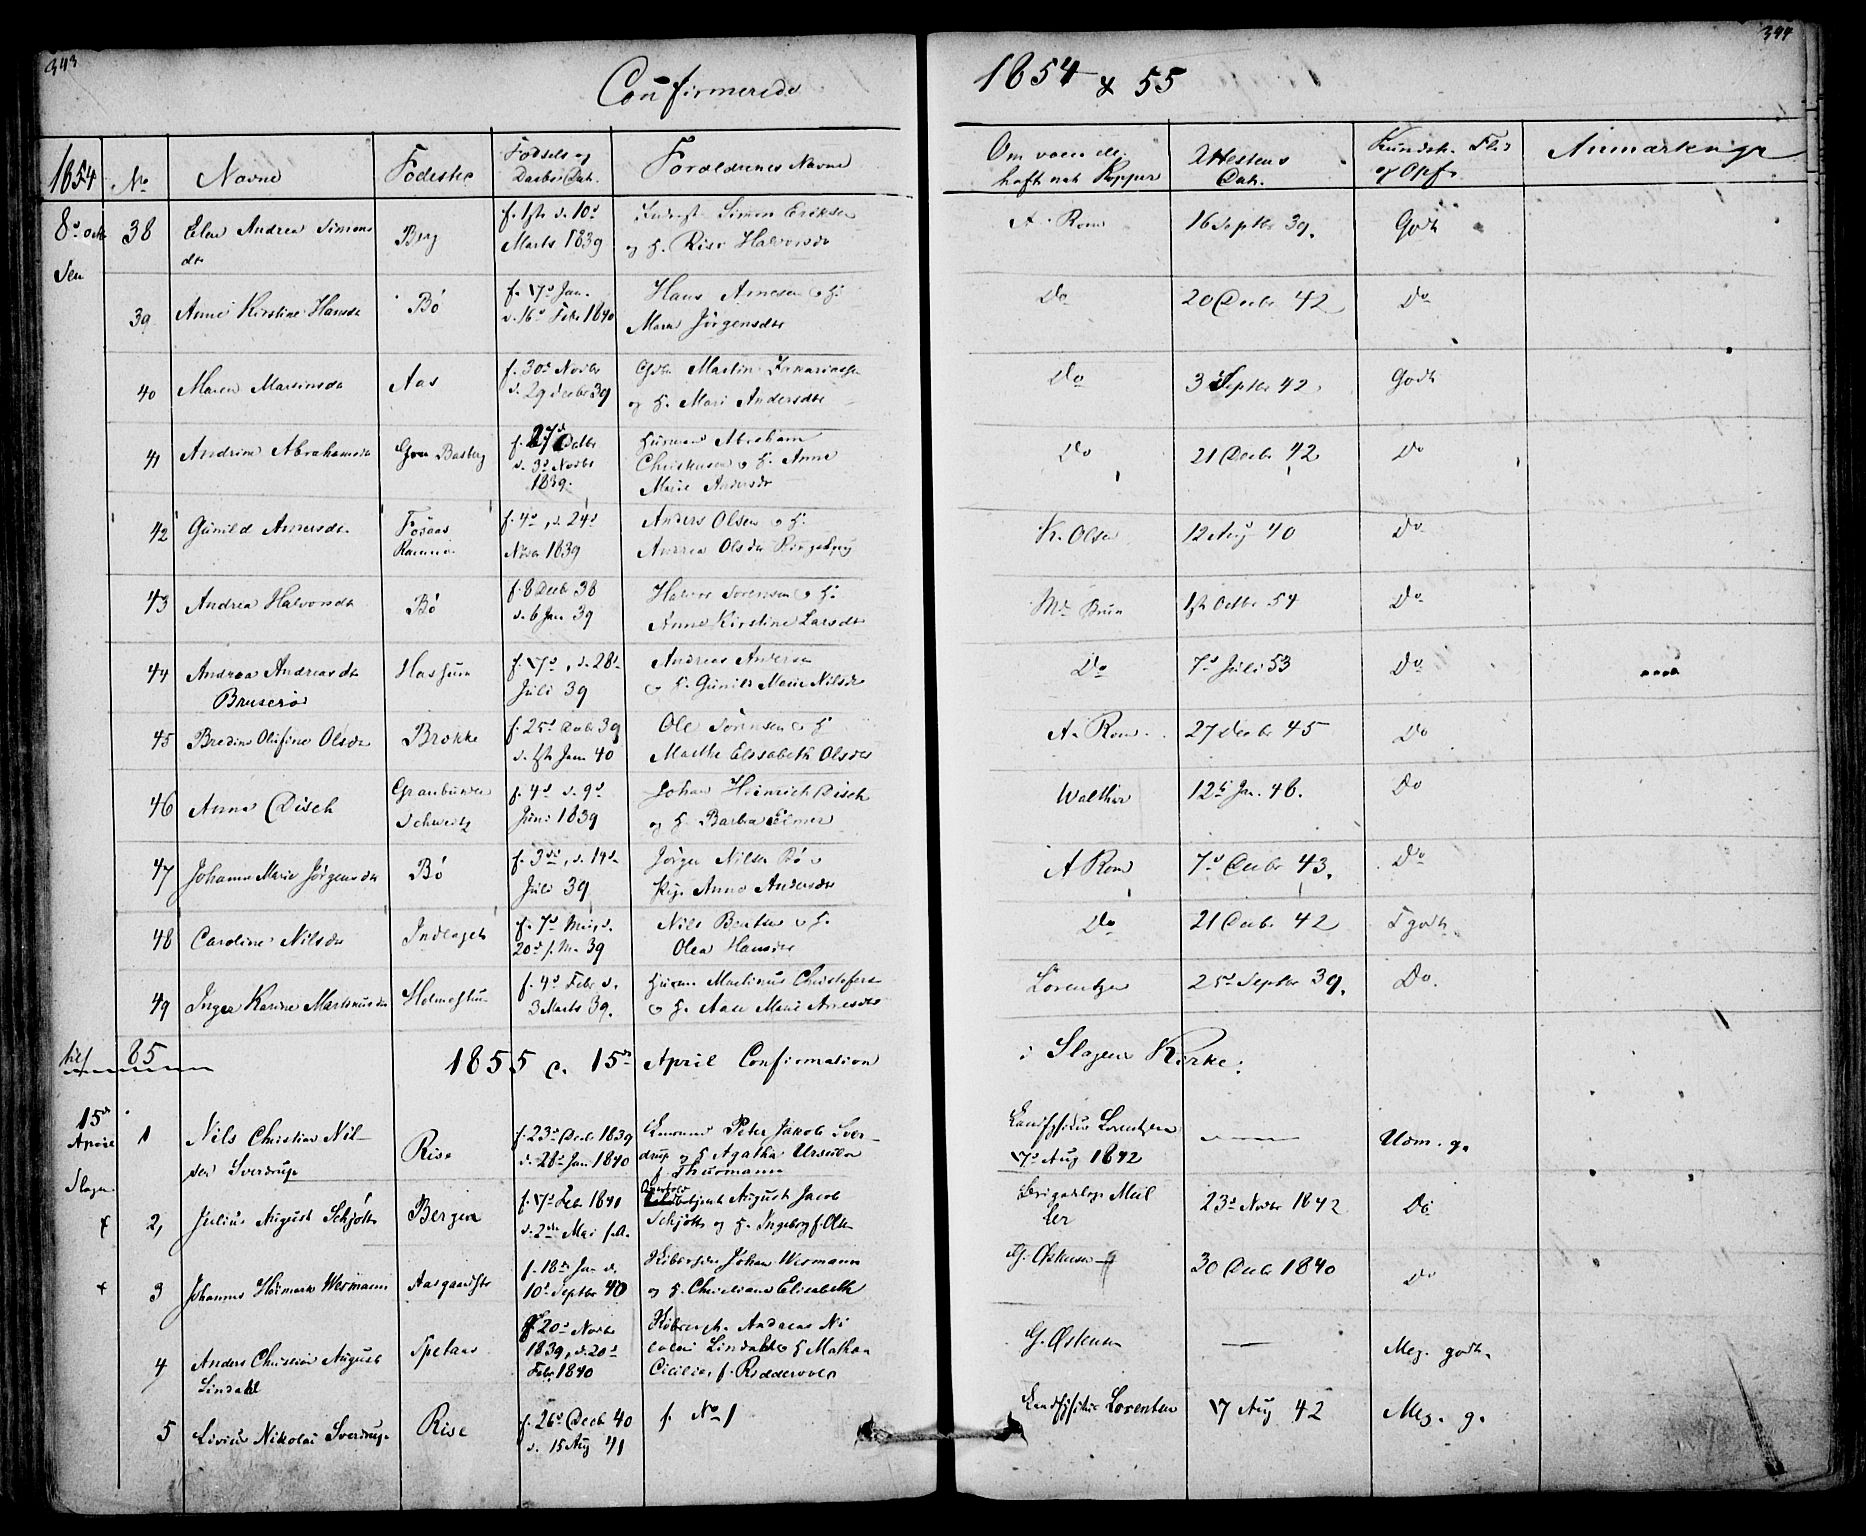 343
Confirmerede
1854 & 55
344
1854
No
Navne
Fødested
Fødsels og
Daabs Dat.
Forældrenes Navne
Om vaccin.
haft nat. Kopper
Attestens
Dat.
Kundsk. Flid
og Opf.
Anmærkninger
8de Octb
38
Elen Andrea Simons
dtr
Berg
f. 1ste d. 10de
Marts 1839
Simon Eriksen
og H. Halvorsdtr
A. Rom
16 Septbr 39.
Godt
39
Anne Kirstine Hansdtr
Bö
f. 17de Jan.
d. 16de Febr 1840
Hans Arnesen og H.
Maren Jörgensdtr
Do
20 Decbr 42
Do
40
Maren Martinsdtr
Aas
f. 30de Novbr
d. 29 Decbr 39
Martin Zakariassen
og H. Mari Andersdtr
Do
3 Septbr 42.
Godt
41
Andrine Abrahamsdtr
Basberg
f. 27de Octbr
d. 3de Novbr
1839.
Husmand Abraham
Christensen og H. Anne
Marie Andersdtr
Do
21 Decbr 42
Do
42
Gunild Andersdtr
Ramnæs
f. 4de, d. 24de
Novbr 1839
Anders Olsen og H.
Andrea Olsdtr
K. Olsen
12 Aug 40
Do
43
Andrea Halvorsdtr
Bö
f. 8 Decbr 38
d. 6 Jan 39
Halvor Sörensen og H.
Anne Kirstine Larsdtr
Brun
1ste Octbr 54
Do
44
Andrea Andreasdtr
Bruserød
f. 17de, d. 28de
Juli 39
Andreas Andersen
og H. Gunild Marie Nilsdtr
Do
7de Juli 53
Do
45
Bredine Olufine Olsdtr
Brokke
f. 25de Decbr 39
d. 1ste Jan 40
Ole Sörensen og H
Marthe Elisabeth Olsdtr
A. Rom
27 Decbr 45
Do
46
Anna Disch
Graubunden
Schweitz
f. 4de d. 9de
Juni 1839
Johan Heinrich Disch
og H. Barbra Elmer
Walther
12te Jan. 46.
Do
47
Johanne Marie Jörgensdtr
Bö
f. 3de, d. 14de
Juli 39
Jörgen Nilsen Bö og
Anne Andersdtr
A Rom
7de Decbr 43.
Do
48
Caroline Nilsdtr
Indlaget
f. 7de Mai, d.
20de s. M. 39
Nils Berntsen og H.
Olea Hansdtr
Do
21 Decbr 42
T godt
49
Inger Karine Martinusdtr
f. 4de Febr d.
3 Marts 39.
Husm. Martinus Christofersen
og H. Aase Marie Arnesdtr
Lorentzen
25de Septbr 39.
Do.
85
1855 d. 15de April Confirmation
i Slagens Kirke:
15de
April
Slagen
1
Nils Christian Nil-
sen Sverdrup
Rise
f. 23de Decbr 1839
d. 28de Jan 1840
Peter Jakob Sver-
drup og H Agatha Ursula
f. Thurmann
Landfysikus Lorentzen
17de Aug 1842
Udm. g.
2,
Julius August Schjött
Bergen
f. 17de Febr 1840
d. 2den Mai
August Jacob
Schjött og H. Ingeborg f. Olsen
Brigadelæge Meil
ler
23de Novbr 1842
Do
3
Johannes Wesmann
Aasgaardstr
f. 18de Jan d.
10de Septbr 40
Johan Wesmann
og H. Christiane Elisabeth
G. Östensen
30 Decbr 1840
Do
4
Anders Christian August
Lindahl
f. 20de Novbr
1839, d. 20de
Febr. 1840
Andreas Ni
colai Lindahl og H Mathea
Cicilie f. Riddervold
G. Östensen
Meg. godt.
5
Livius Nikolai Sverdrup
Rise
f. 26de Decbr 40
d. 15 Aug 41
f. No 1
Landfysikus Lorentzen
17 Aug 42
Meg. g.